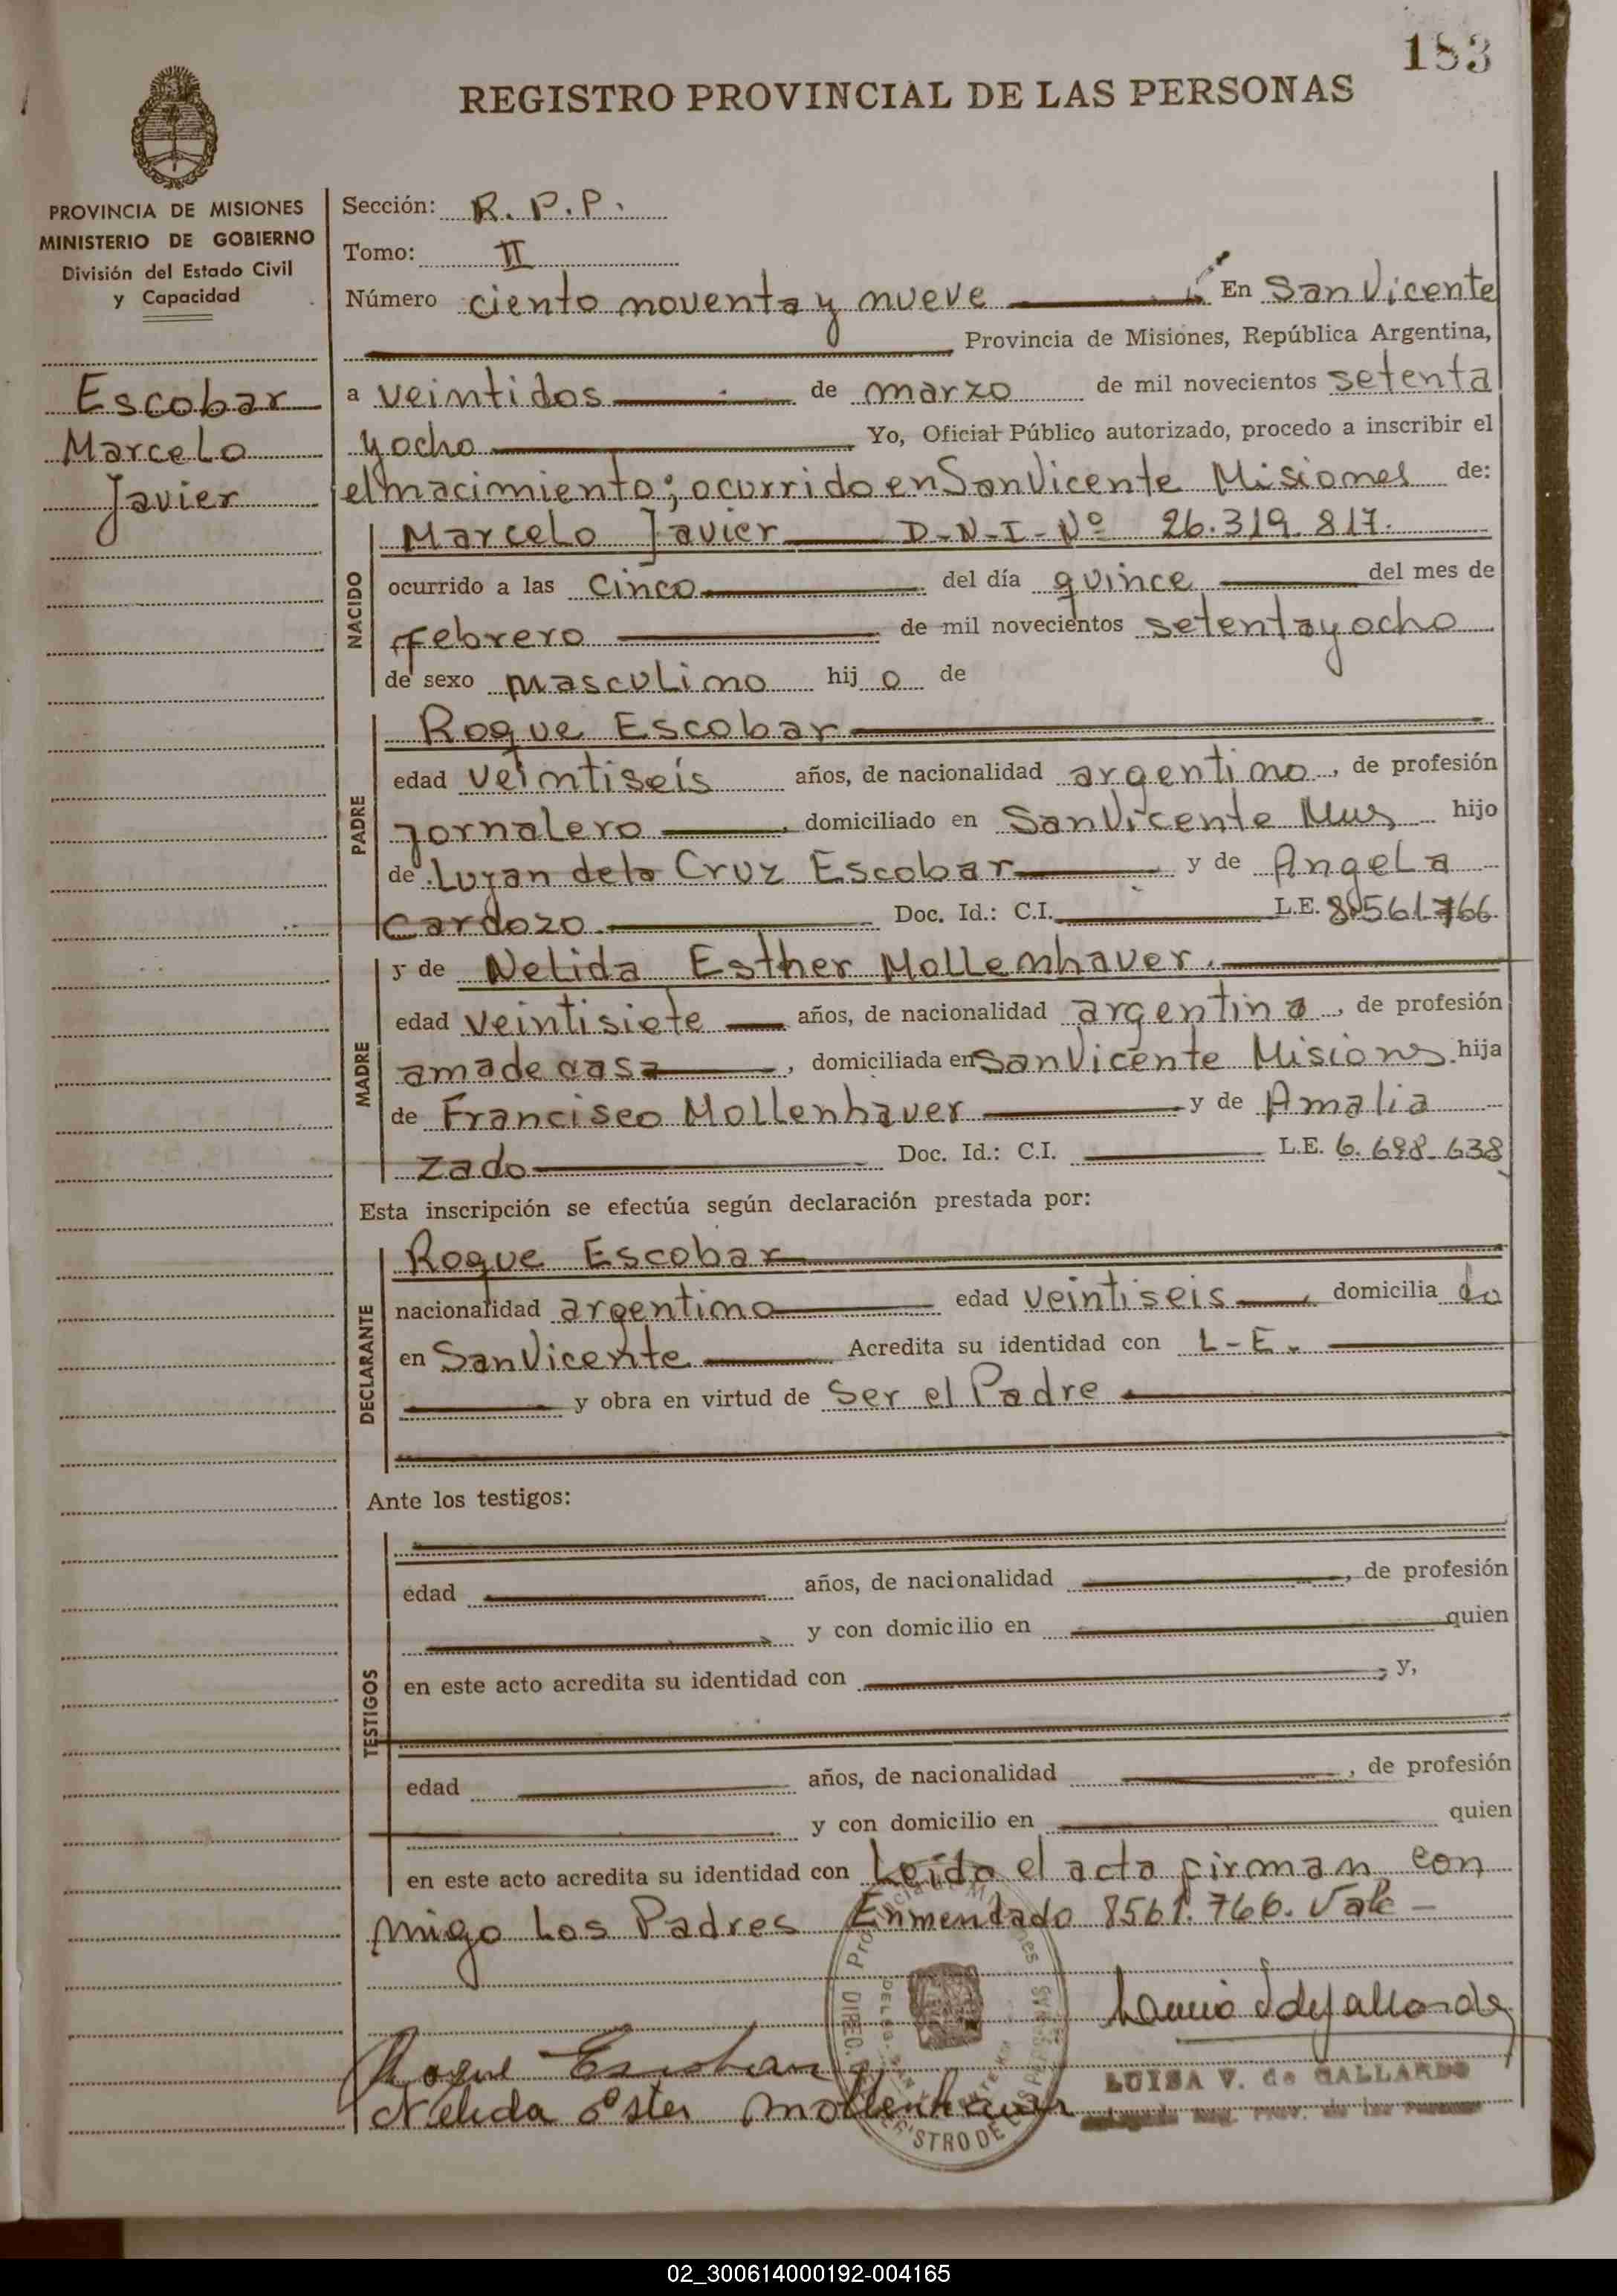 183
REGISTRO PROVINCIAL DE LAS PERSONAS
PROVINCIA DE MISIONES
MINISTERIO DE GOBIERNO
División del Estado Civil
y Capacidad
Escobar
Marcelo
Javier
Sección: R. P. P.
Tomo: II
Número ciento noventa y nueve En San Vicente
Provincia de Misiones, República Argentina,
a veintidos de marzo de mil novecientos setenta
y ocho Yo, Oficial Público autorizado, procedo a inscribir el
el nacimiento; ocurrido en San Vicente Misiones de:
NACIDO
Marcelo Javier D-N-I-Nº 26.319.817.
ocurrido a las cinco del día quince del mes de
febrero de mil novecientos setenta y ocho
de sexo masculino hij o de
PADRE
Roque Escobar
edad veintiseis años, de nacionalidad argentino, de profesión
jornalero, domiciliado en San Vicente Mns hijo
de Lujan dela Cruz Escobar y de Angela
Cardozo Doc. Id.: C.I. L.E. 8.561.766.
MADRE
y de Nelida Esther Mollenhauer.
edad veintisiete años, de nacionalidad argentina, de profesión
ama de casa, domiciliada en San Vicente Misiones. hija
de Francisco Mollenhauer y de Amalia
Zado Doc. Id.: C.I. L.E. 6.698.638
Esta inscripción se efectúa según declaración prestada por:
DECLARANTE
Roque Escobar
nacionalidad argentino edad veintiseis, domicilia do
en San Vicente Acredita su identidad con L-E.
y obra en virtud de Ser el Padre
Ante los testigos:
TESTIGOS
edad años, de nacionalidad , de profesión
y con domicilio en quien
en este acto acredita su identidad con ; y,
edad años, de nacionalidad , de profesión
y con domicilio en quien
en este acto acredita su identidad con Leida el acta firman con
migo Los Padres Enmendado 8561.766. Vale -
Roque Escobar
Nelida Ester Mollenhauer
LUISA V. de GALLARDO
02_300614000192-004165